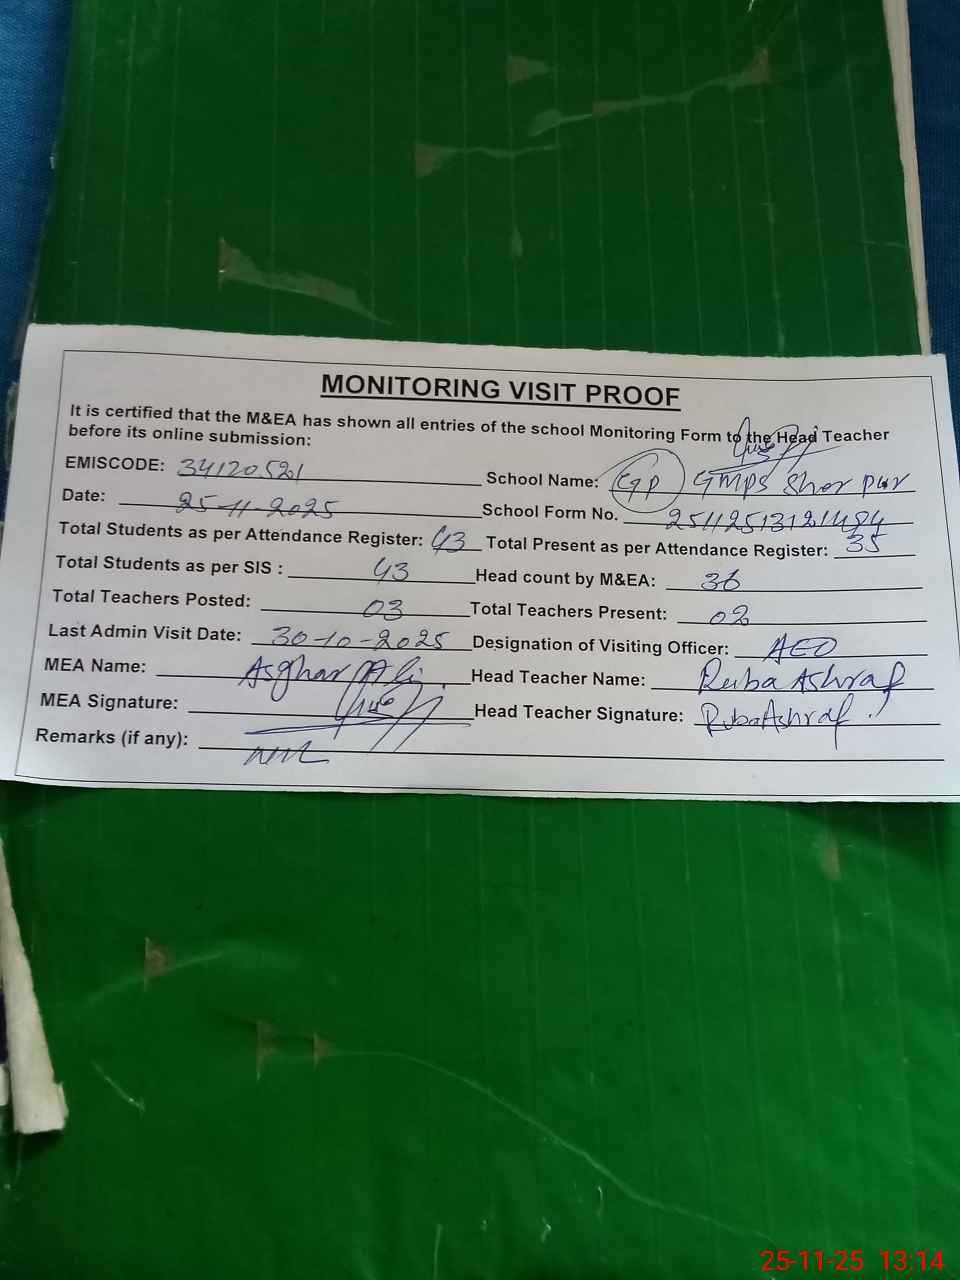 MONITORING VISIT PROOF
It is certified that the M&EA has shown all entries of the school Monitoring Form to the Head Teacher
before its online submission:
EMISCODE: 34120521 School Name: GMPS Sher pur
Date: 25-11-2025 School Form No. 25112513121484
Total Students as per Attendance Register: 43 Total Present as per Attendance Register: 35
Total Students as per SIS : 43 Head count by M&EA: 36
Total Teachers Posted: 03 Total Teachers Present: 02
Last Admin Visit Date: 30-10-2025 Designation of Visiting Officer: AEO
MEA Name: Asghar Ali Head Teacher Name: Ruba Ashraf
MEA Signature: Head Teacher Signature: Ruba Ashraf
Remarks (if any):
25-11-25 13:14